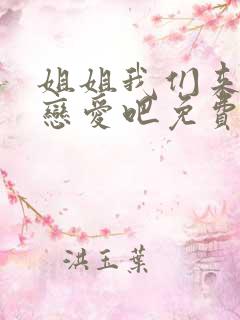 姐姐我们来
戀愛吧免費
洪玉葉